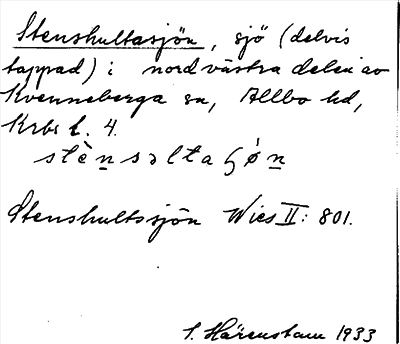 Stenshultasjön, sjö (delvis
tappad) i nordvästra delen av
Kvenneberga sn, Allbo hd,
Krbs l. 4.
stènsəltaʃón
Stenshultssjön Wies II: 801.
S. Härenstam 1933